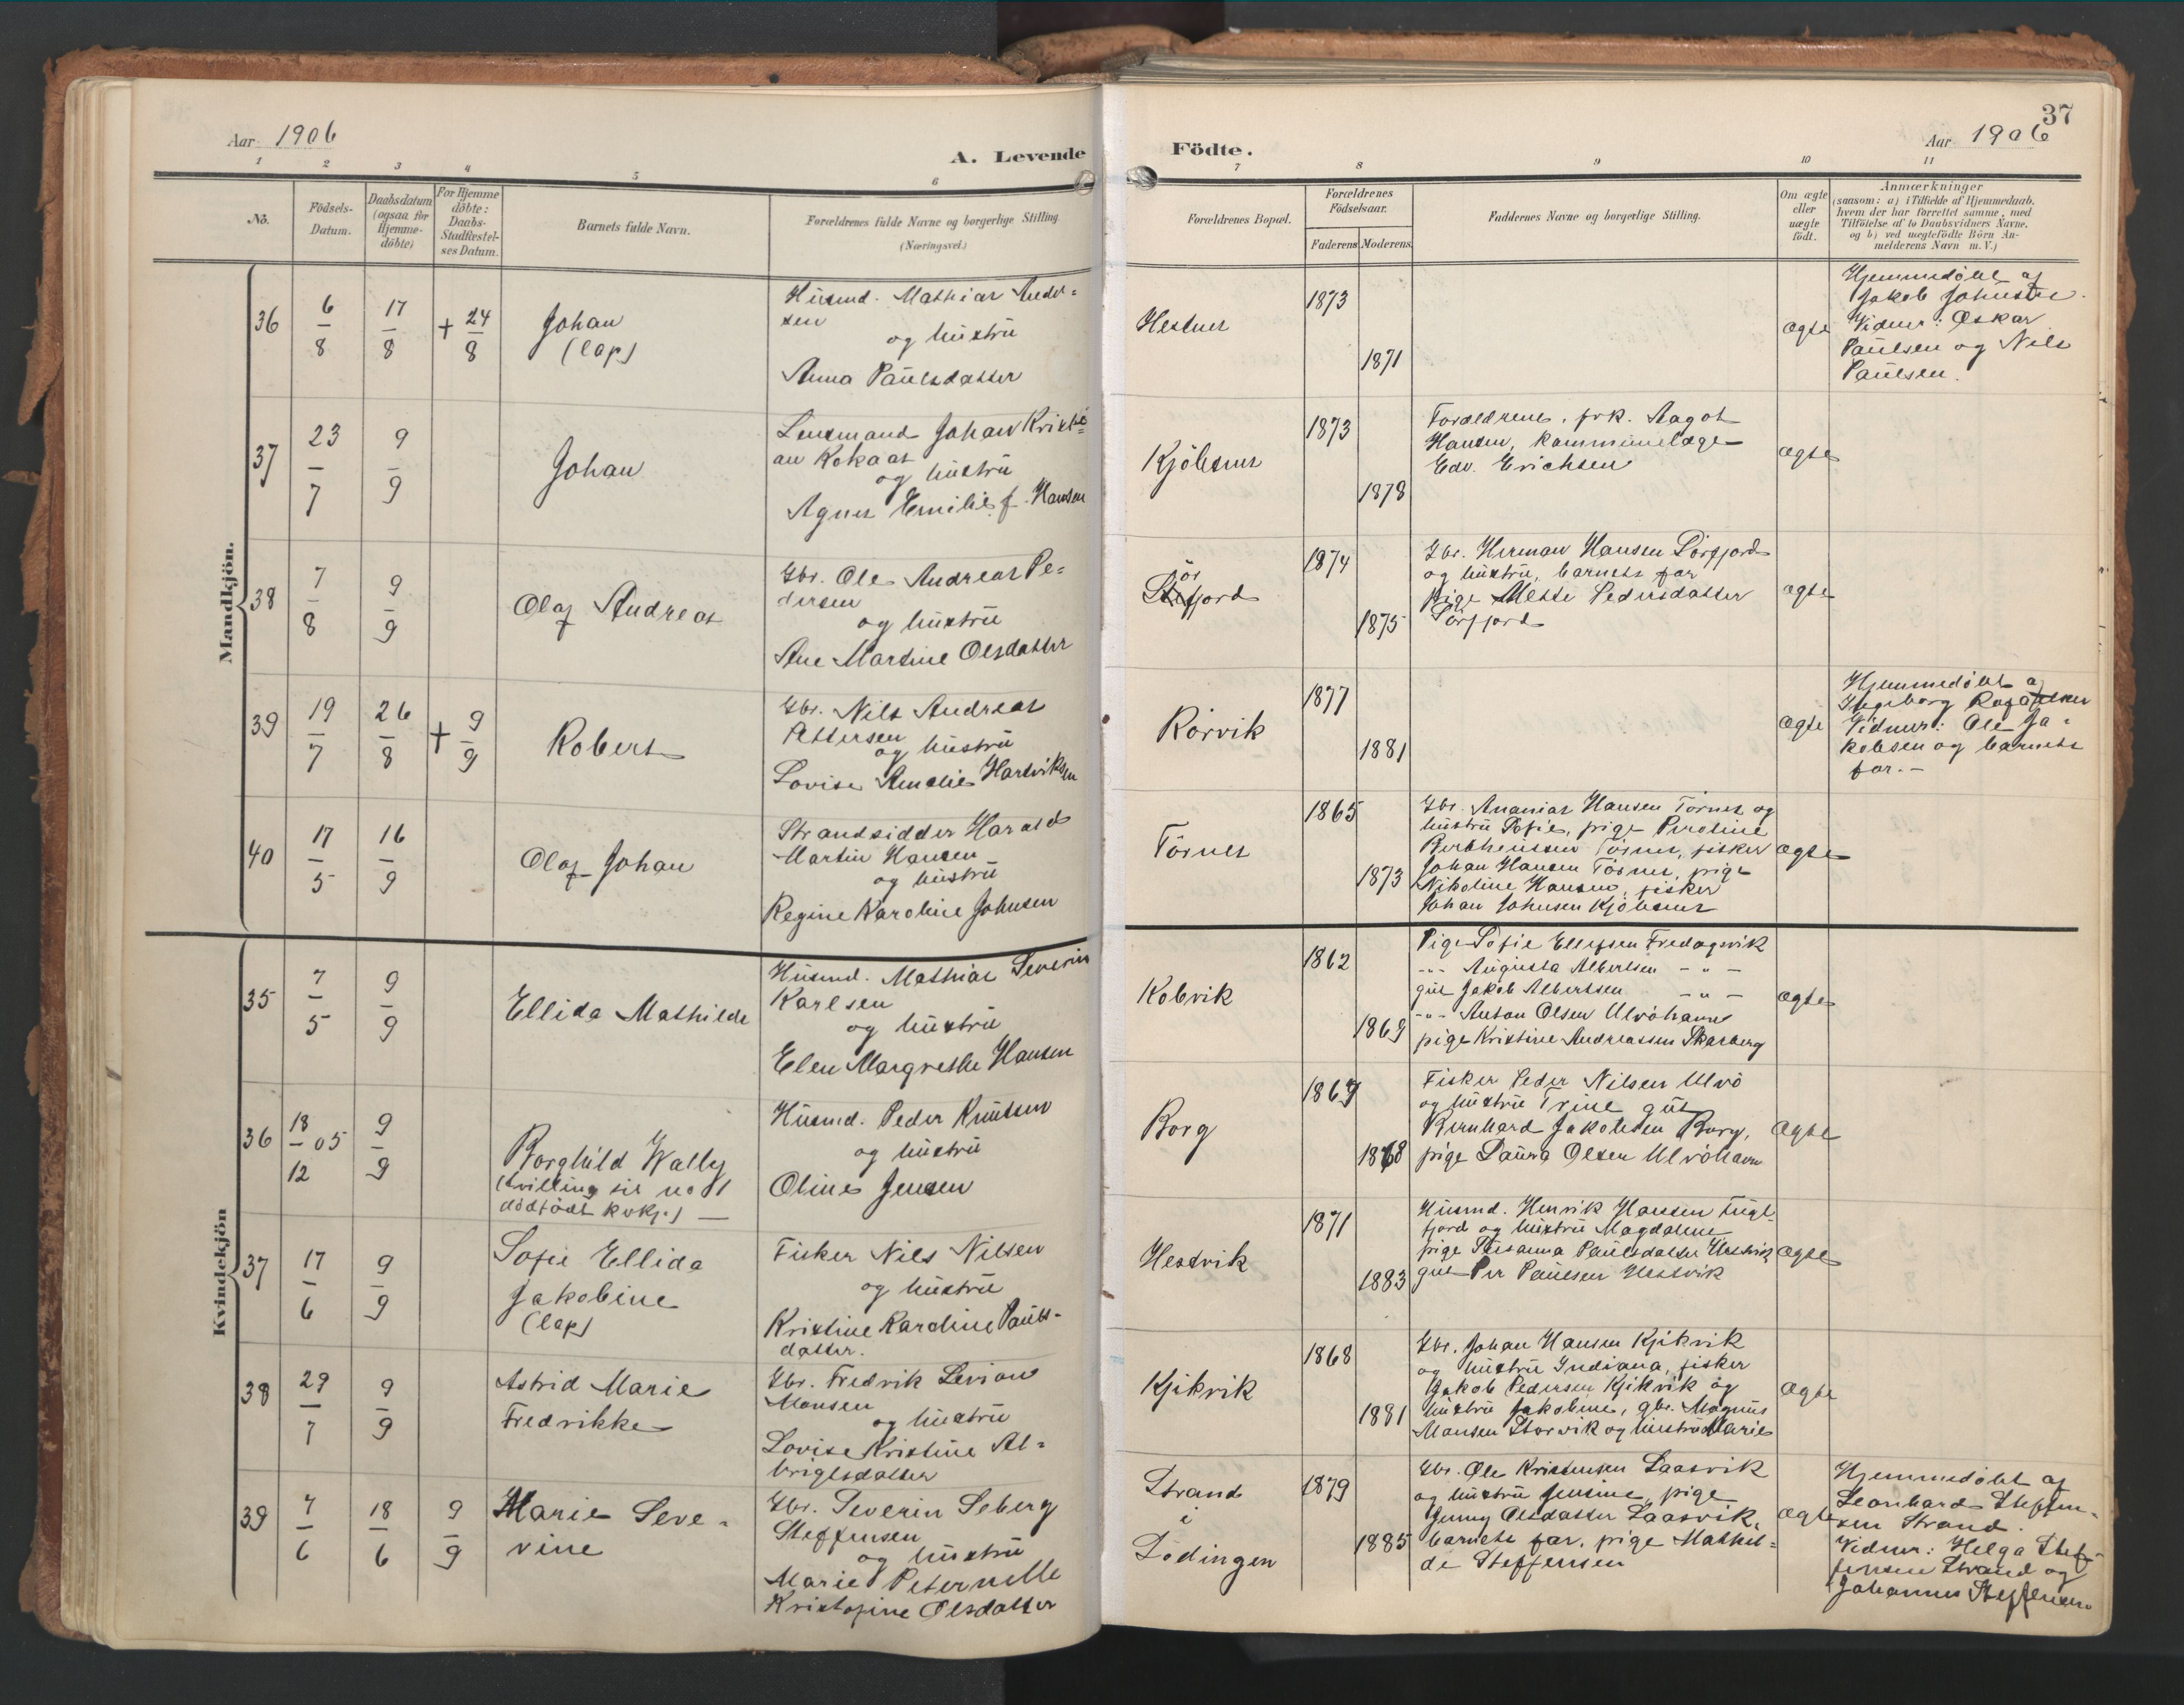 Aar 1906
A. Levende
1 2 3 4 5 6
Nô.
Födsels-
Datum.
Daabsdatum
(ogsaa for
Hjemme-
döbte)
For Hjemme
döbte:
Daabs-
Stadfæstel-
ses Datum.
Barnets fulde Navn.
Forældrenes fulde Navne og borgerlige Stilling.
(Næringsvei.)
Mandkjön.
36
6
8
17
8
+ 24
8
Johan
(lap)
Husmd. Mathias Andr=
sen
og hustru
Anna Paulsdatter
37
23
7
9
9
Johan
Lensmand Johan Kristi=
an Kokaas
og hustru
Agnes Emilie f. Hansen
38
7
8
9
9
Olaf Andreas
Gbr. Ole Andreas Pe=
dersen
og hustru
Ane Martine Olsdatter
39
19
7
26
8
+ 9
9
Robert
Gbr. Nils Andreas
Pettersen
og hustru
Lovise Amalie Hartviksen
40
17
5
16
9
Olaf Johan
Strandsidder Harald
Martin Hansen
og hustru
Regine Karoline Johnsen
Kvindekjön
35
7
5
9
9
Ellida Mathilde
Husmd. Mathias Severin
Karlsen
og hustru
Elen Margrethe Hansen
36
18 05
12
9
9
Borghild Wally
(tvilling til no 1
dödfödt kvkj.) —
Husmd. Peder Knutsen
og hustru
Oline Jensen
37
17
6
9
9
Sofie Ellida
Jakobine
(lap)
Fisker Nils Nilsen
og hustru
Kristine Karoline Pauls-
datter.
38
29
7
9
9
Astrid Marie
Fredrikke
Gbr. Fredrik Levion
Monsen
og hustru
Lovise Kristine Al=
brigtsdatter
39
7
6
18
6
9
9
Marie Seve-
rine
Gbr. Severin Seberg
Steffensen
og hustru
Marie Peternelle
Kristofine Olsdatter
37
Födte.
Aar 1906
7 8 9 10 11
Forældrenes Bopæl.
Forældrenes
Födselsaar.
Faderens Moderens
Faddernes Navne og borgerlige Stilling.
Om ægte
eller
uægte
födt.
Anmærkninger
(saasom: a) i Tilfælde af Hjemmedaab.
hvem der har forrettet samme, med
Tilföielse af to Daabsvidners Navne.
og b) ved uægtefödte Börn An-
melderens Navn m. V.)
Hestnes
1873
1871
ægte
Hjemmedöbt af
Jakob Johnsen.
Vidner: Oskar
Paulsen og Nils
Paulsen.
Kjöbsnes
1873
1878
Forældrene, frk. Aagot
Hansen, kommunelæge
Edv. Erichsen
ægte
ör
fjord
1874
1875
Gbr. Herman Hansen Sörfjord
og hustru, barnets far
pige Mette Pedersdatter
Sörfjord
ægte
Rörvik
1877
1881
ægte
Hjemmedöbt af
Ingeborg
Vidner: Ole Ja=
kobsen og barnets
far. -
Törnes
1865
1873
Gbr. Ananias Hansen Törnes og
hustru Sofie, pige Peroline
Berthensen Törnes, fisker
Johan Hansen Törnes, pige
Nikoline Hansen, fisker
Johan Johnsen Kjöbsnes
ægte
Kobvik
1862
1869
Pige Sofie Ellefsen Fredagsvik
-"- Augusta Albertsen - " -
gut Jakob Albertsen - " -
-"- Anton Olsen Ulvöhavn
pige Kristine Andreassen Skarberg
ægte
Borg
1867
1868
Fisker Peder Nilsen Ulvö
og hustru Trine gut
Bernhard Jakobsen Borg,
pige Laura Olsen Ulvöhavn
ægte
Hestvik
1871
1883
Husmd. Henrik Hansen
fjord og hustru Magdalene
pige Susanna Paulsdatter Hestvik
gut Per Paulsen Hestvik
ægte
Kjikvik
1868
1881
Gbr. Johan Hansen Kjikvik
og hustru Indiana, fisker
Jakob Pedersen Kjikvik og
hustru Jakobine, gbr. Magnus
Monsen Storvik og hustru Marie
ægte
Strand
i
Lödingen
1879
1885
Gbr. Ole Kristensen Laasvik
og hustru Jensine, pige
Jenny Olsdatter Laasvik,
barnets far, pige Mathil=
de Steffensen
ægte
Hjemmedöbt af
Leonhard Steffen-
sen Strand.
Vidner: Helga Stef-
fensen Strand og
Johannes Steffensen.